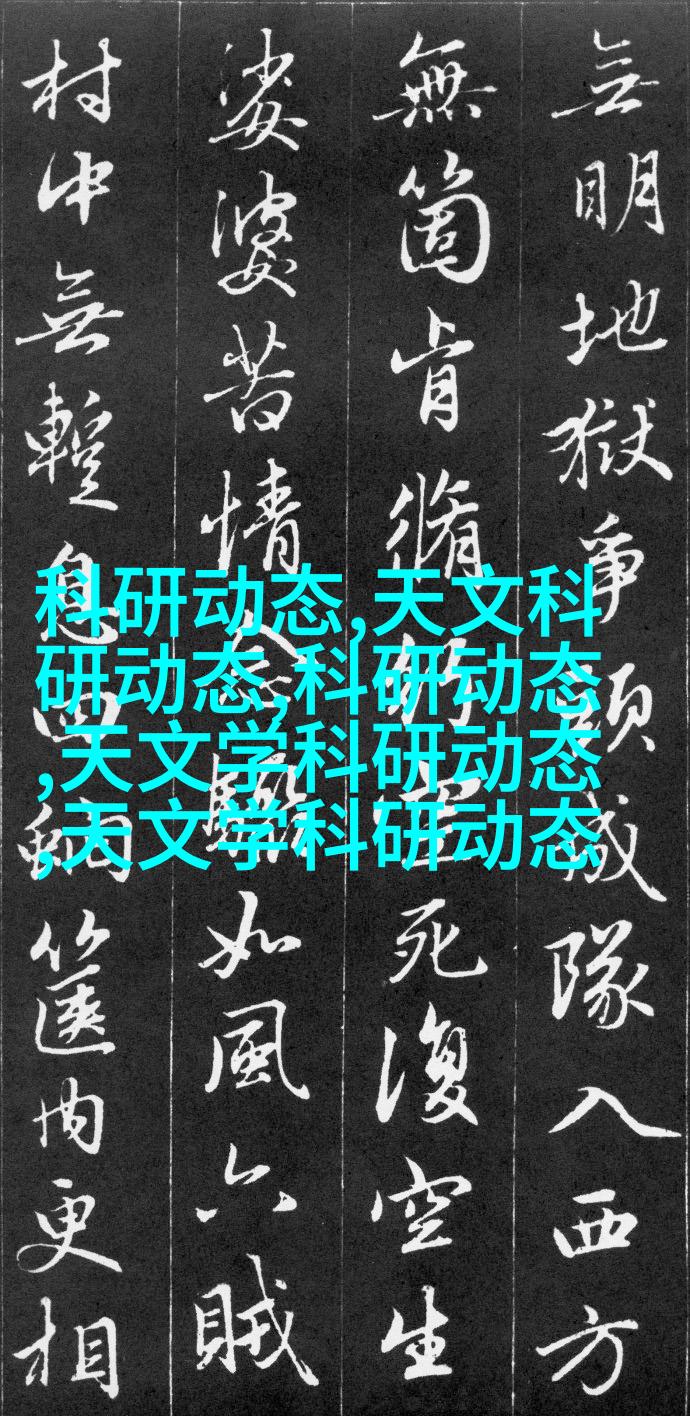 無明地獄爭頭成隊入西方
無箇肯脩死復空生
娑婆苦情如風六賊
村中無蹔息四篋内更相
科研动态,天文科
研动态,科研动态
,天文学科研动态
,天文学科研动态